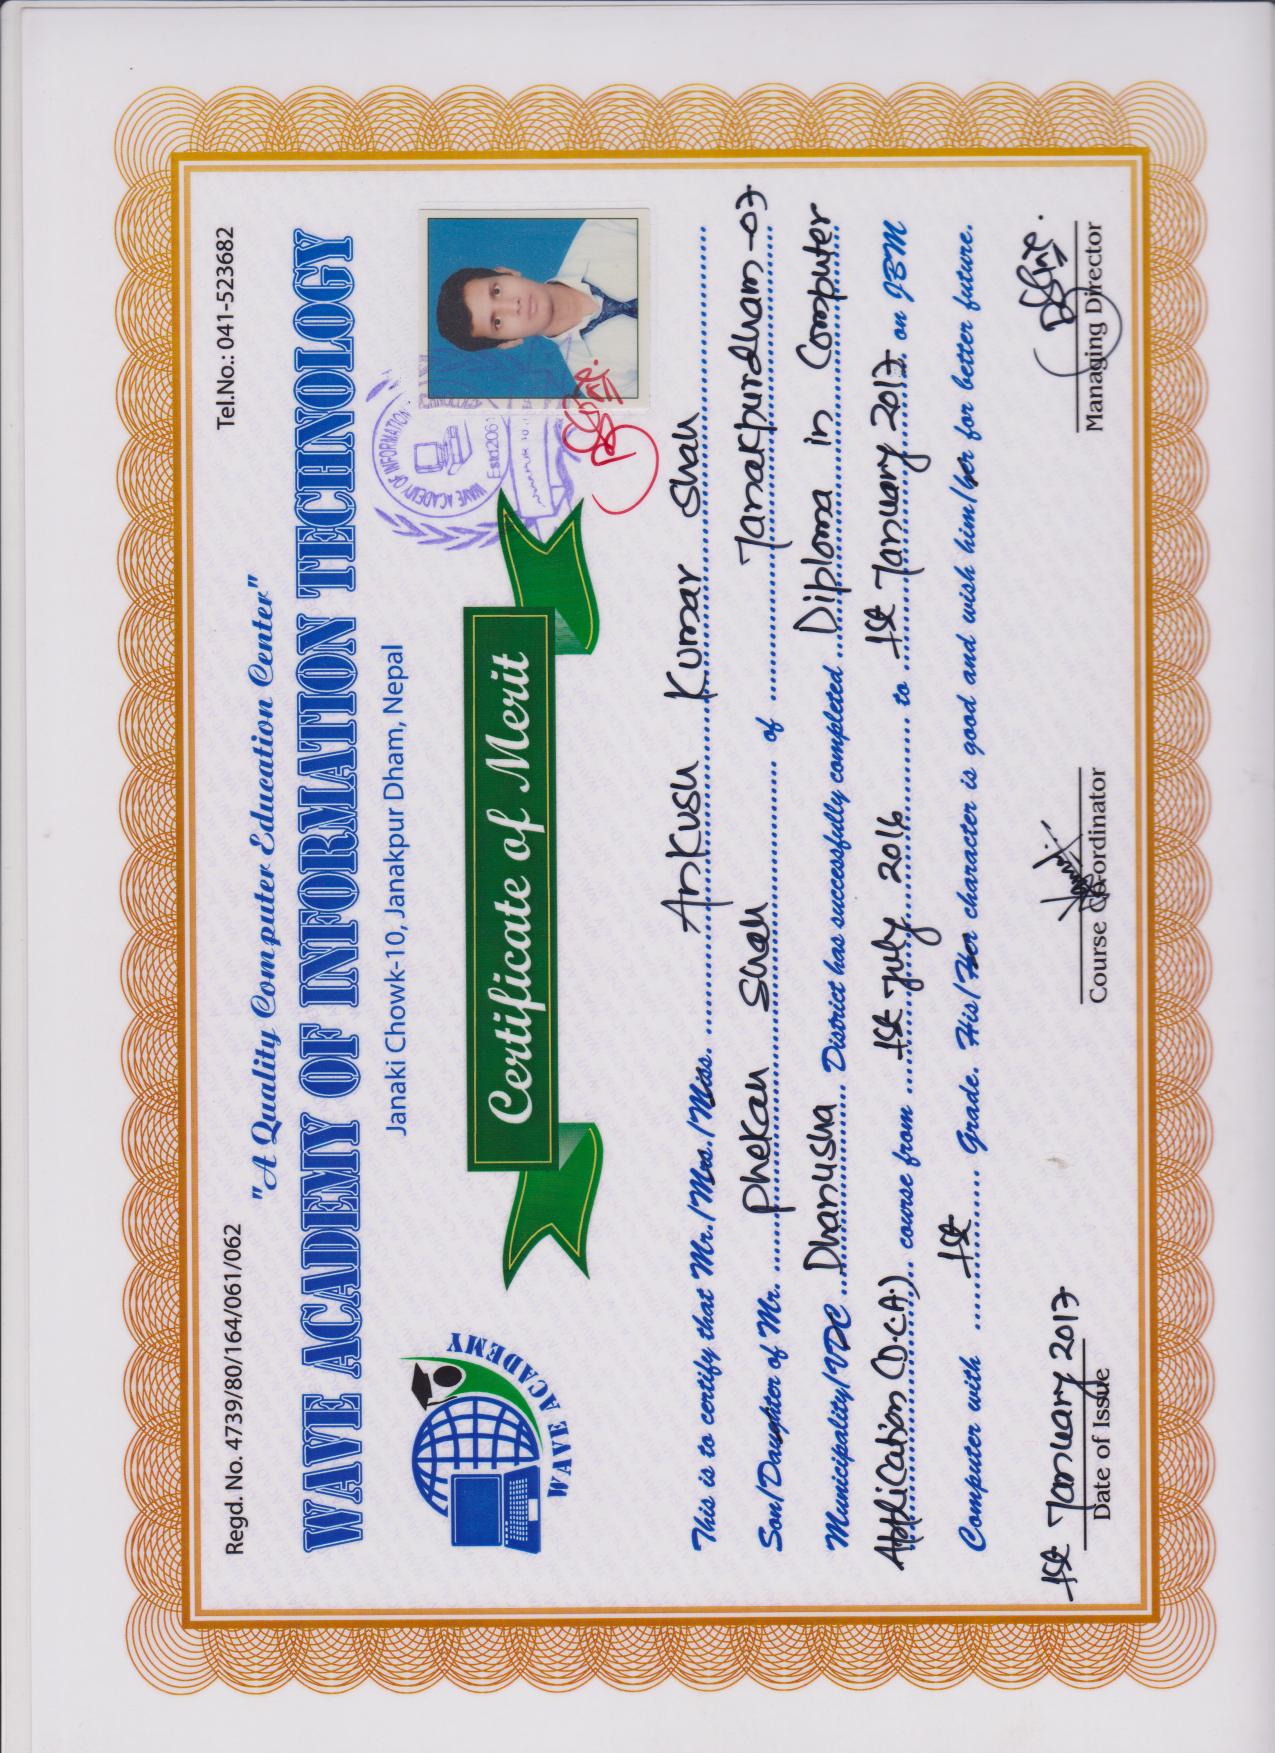 Regd. No. 4739/80/164/061/062
Tel.No.: 041-523682
"A Quality Computer Education Center"
WAVE ACADEMY OF INFORMATION TECHNOLOGY
Janaki Chowk-10, Janakpur Dham, Nepal
WAVE ACADEMY
Certificate of Merit
WAVE ACADEMY OF INFORMATION
Estd.2061
This is to certify that Mr./Mrs./Miss. Ankush Kumar Shah
Son/Daughter of Mr. Phekan Shah of Janakpurdham-07
Municipality/VDC Dhanusha District has successfully completed Diploma in Computer
Application (D.C.A.) course from 1st July 2016 to 1st January 2017 on JBM
Computer with 1st Grade. His/Her character is good and wish him/her for better future.
1st January 2017
Date of Issue
Course Co-ordinator
Managing Director